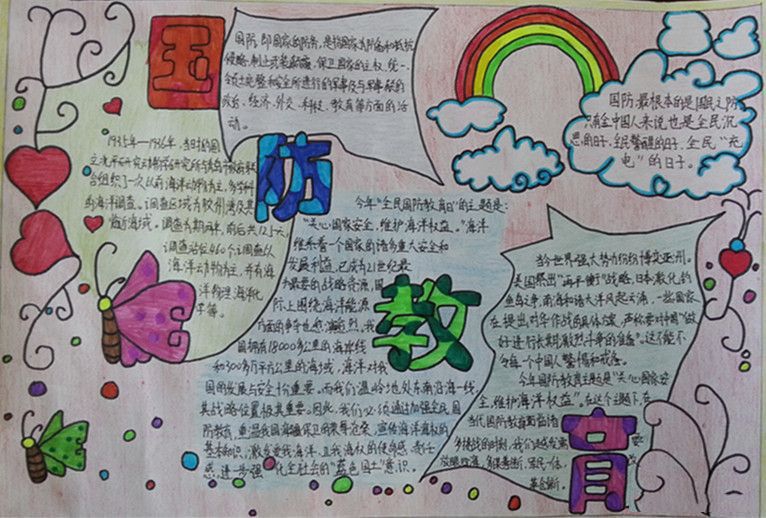 国
防
教
育
国防,即国家的防务,是指国家为防备和抵抗
侵略,制止武装颠覆,保卫国家的主权、统一、
领土完整和安全所进行的军事及与军事有关的
政治、经济、外交、科技、教育等方面的活
动。
国防,最根本的是国民之防
全中国人来说也是全民沉
思的日子、全民警醒的日子、全民“充
电”的日子。
1935年—1936年,
组织了一次以海洋动物为主,多学科
的海洋调查。调查区域为胶州湾及其
临近海域。调查为期两年,前后共12个月,
调查站位460个,调查以
海洋动物为主,并有海
洋物理、海洋化
学等。
今年“全民国防教育日”的主题是:
“关心国家安全,维护海洋权益。”海洋
维系着一个国家的诸多重大安全和
发展利益,已成为21世纪最
为重要的战略资源,国
际上围绕海洋能源
方面的争夺也愈演愈烈,我
国拥有18000多公里的海岸线
和300多万平方公里的海域,海洋对我
国的发展与安全十分重要。而我们温岭地处东南沿海一线,
其战略位置极其重要。因此,我们必须通过加强全民国
防教育,
基本知识,激发爱我海洋、卫我海权的使命感、责任
感,进一步强化全社会的“蓝色国土”意识。
当今世界,强大势力纷纷博弈亚洲。
美国祭出“再平衡”战略,日本激化钓
鱼岛之争,南海和诸大洋风起云涌,一些国家
在提出对华作战的具体方案,声称要对中国“做
好进行长期、激烈斗争的准备”。这不能不
令每一个中国人警惕和戒备。
今年国防教育主题是“关心国家安
全,维护海洋权益”。在这个主题下,在
当代国防教育面临诸
多挑战的时刻,我们越发需要
放眼
革创新。